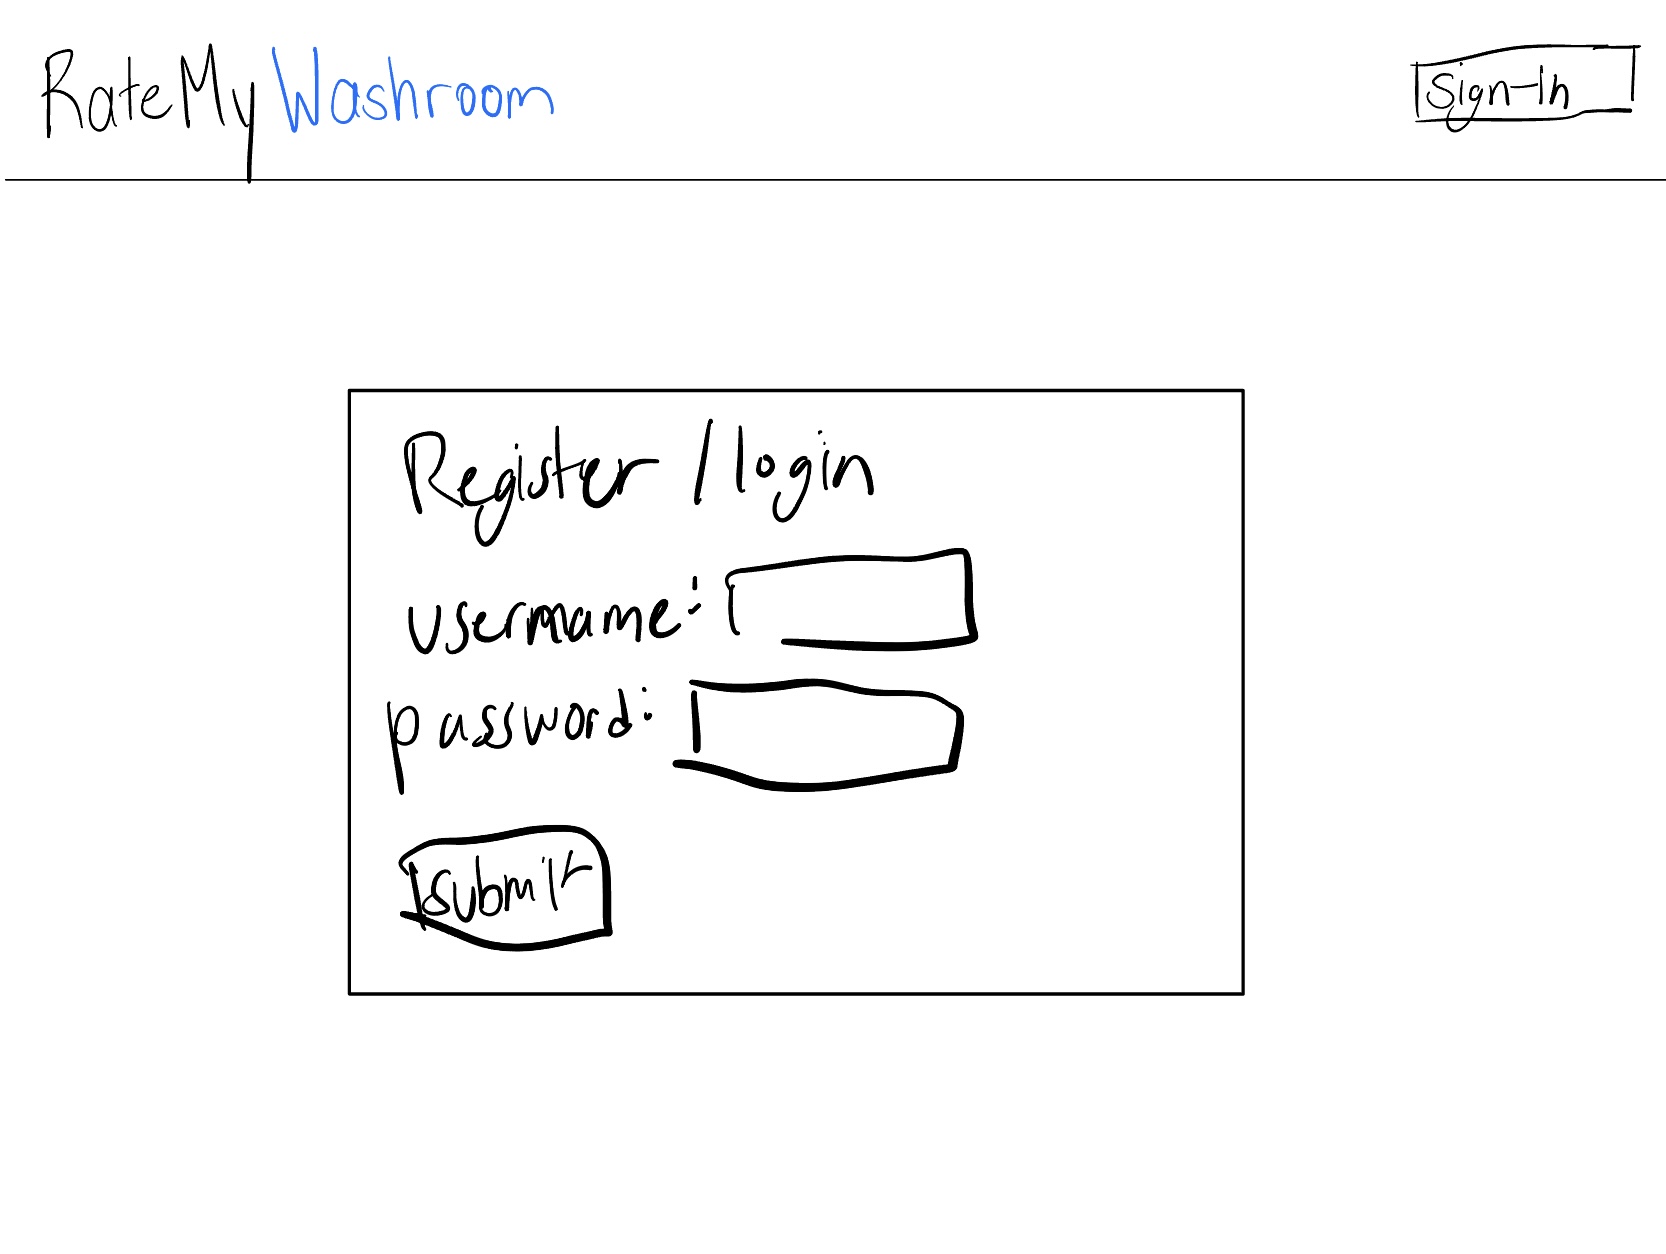 RateMyWashroom
Sign-In
Register / login
username:
password:
submit